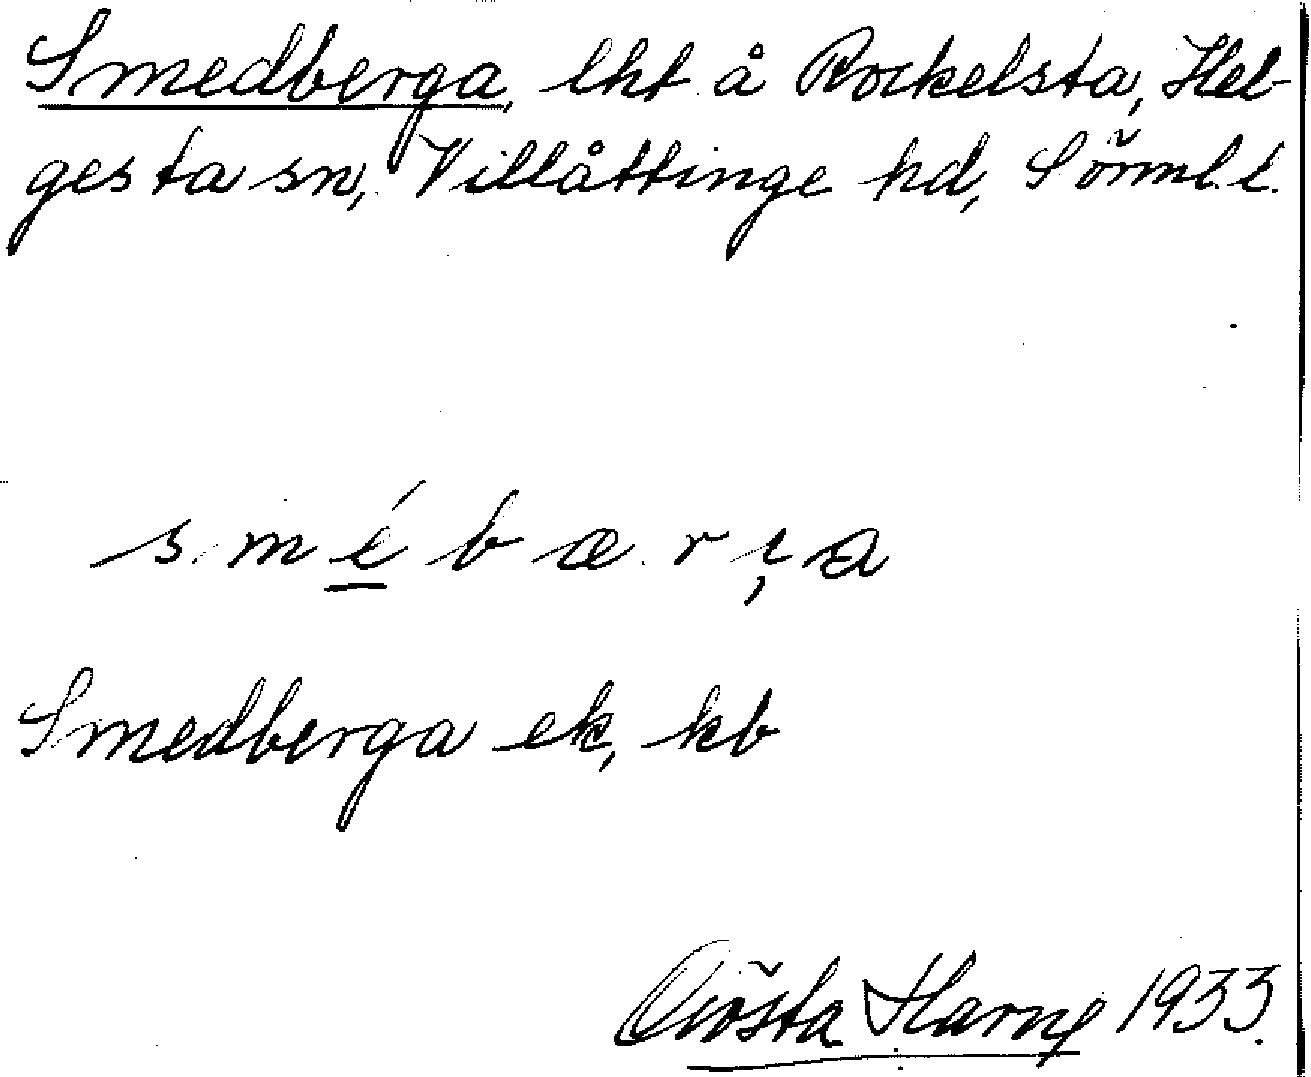 Smedberga, lht å Rockelsta, Hel-
gesta sn, Villåttinge hd, Sörml. l.
s m é b æ r ı̨ a
Smedberga ek, kb
Gösta Harne 1933.